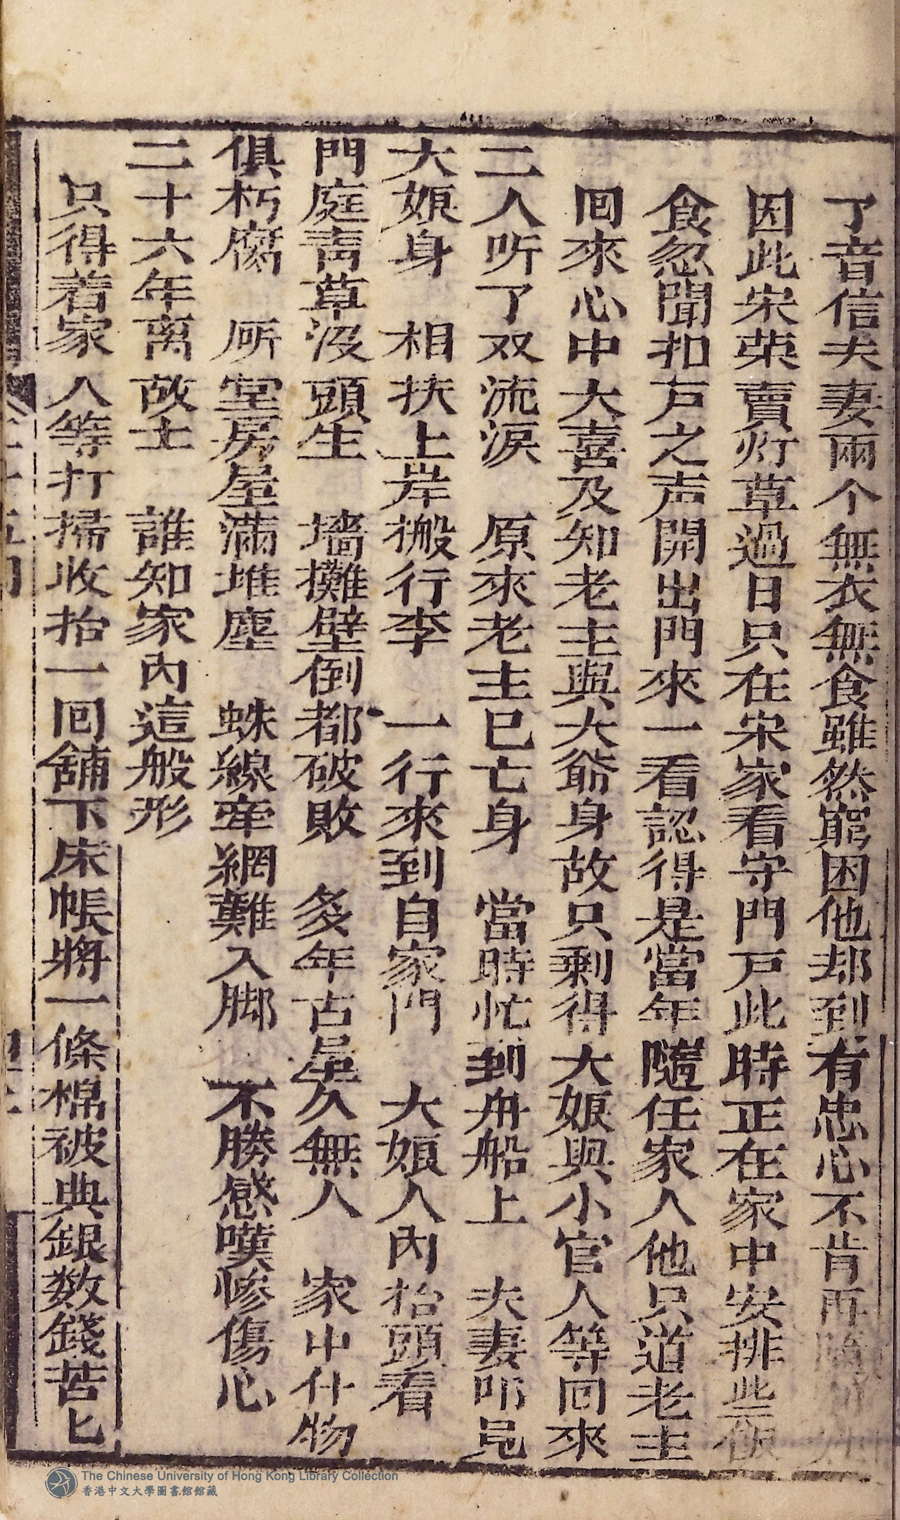 了音信夫妻兩个無衣無食雖然窮困他却到有忠心不肯再
因此宋荣賣灯草過日只在宋家看守門戸此時正在家中安排些
食忽聞扣戸之声開出門來一看認得是當年隨任家人他只道老主
囘來心中大喜及知老主與大爺身故只剩得大娘與小官人等囘來
二人听了双流淚　原來老主已亡身　當時忙到舟船上　夫妻叩見
大娘身　相扶上岸搬行李　一行來到自家門　大娘入內抬頭看
門庭靑草沒頭生　墻攤壁倒都破敗　多年古屋久無人　家中什物
俱朽腐　厛堂房屋滿堆塵　蛛線牽網難入脚　不勝感嘆惨傷心
二十六年离故土　誰知家內這般形
只得着家人等打掃收拾一囘舖下床帳將一條棉被典銀数錢苦匕
The Chinese University of Hong Kong Library Collection
香港中文大學圖書館館藏